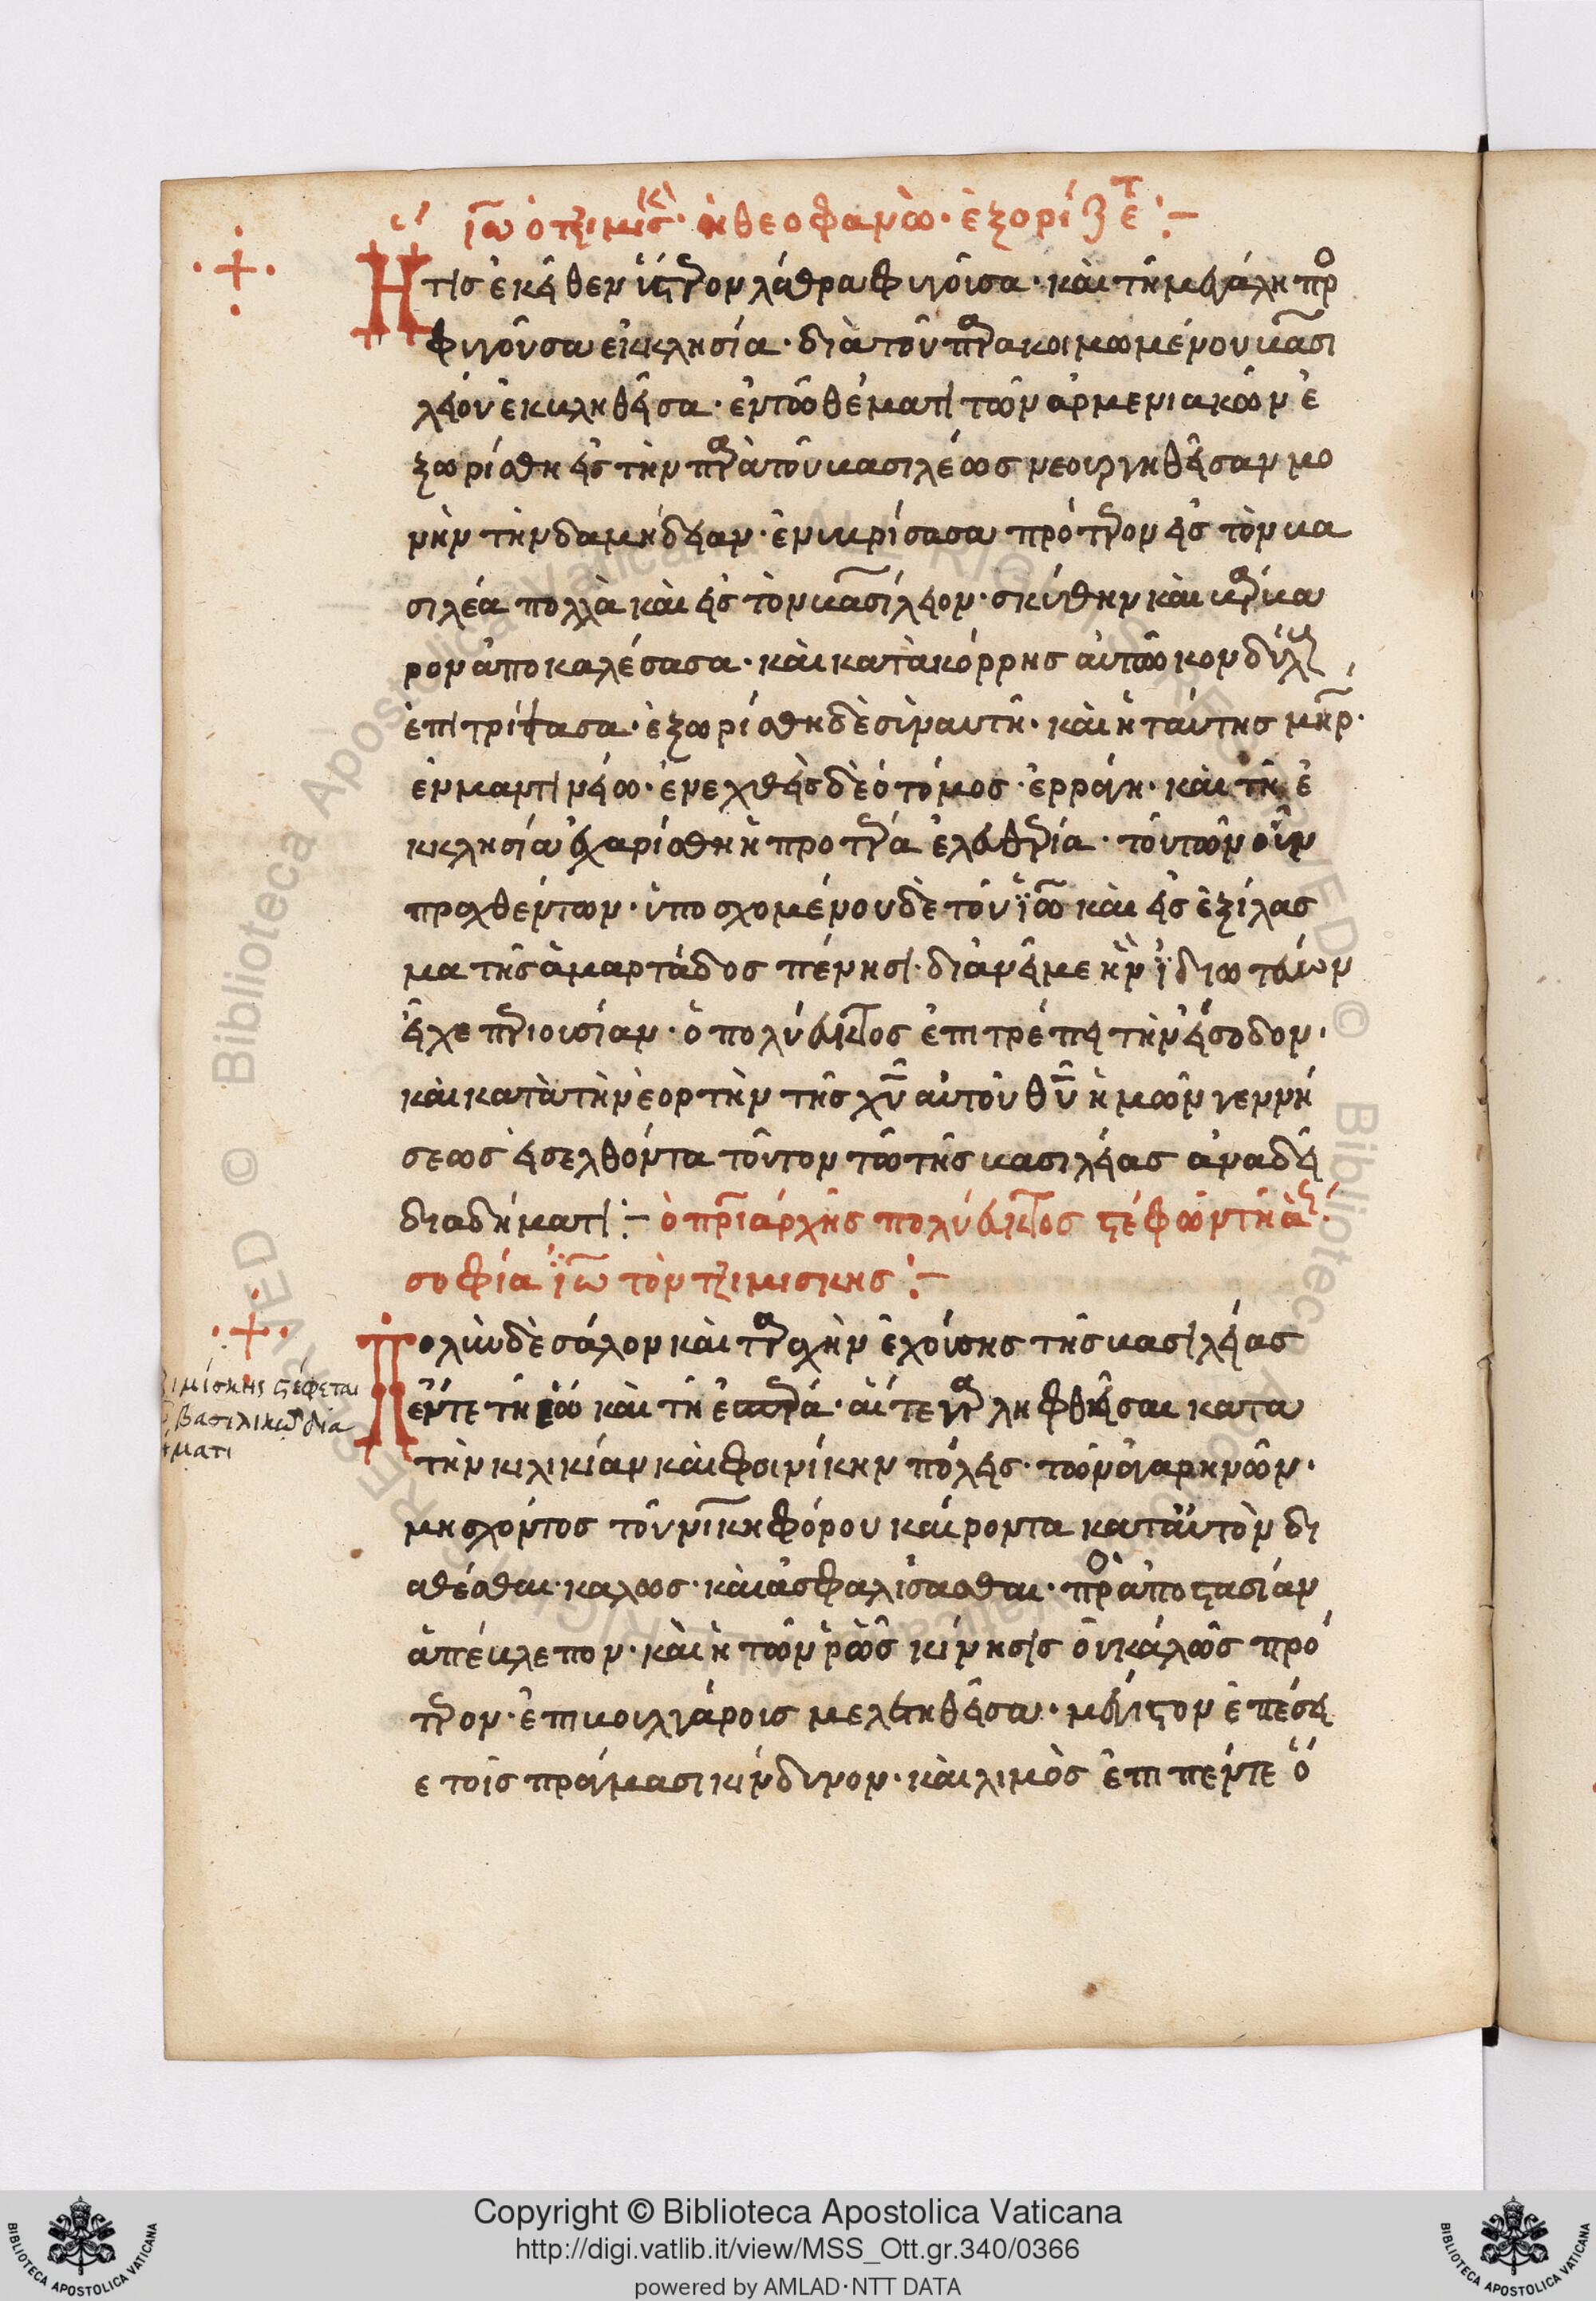 ἰω ὁ τζιμισκὶς· ἡ θεοφανὼ· ἐξορίζετ :-
Ητις ἐκεῖθεν ὕστερον λάθρα φυγοῦσα· καὶ τῆ μεγάλη προ
φυγοῦσα ἐκκλησία· διὰ τοῦ παρακοιμωμένου βασι
λείου ἐκβληθεῖσα· ἐν τῶ θέματι τῶν ἀρμενιακῶν ἐ
ξωρίσθη εἰς τὴν παρὰ τοῦ βασιλέως νεουργηθεῖσαν μο
νὴν τὴν δαμηδείαν· ἐνυβρίσασα πρότερον εἰς τὸν βα
σιλέα πολλὰ καὶ εἰς τὸν βασίλειον· σκύθην καὶ βάρβα
ρον ἀποκαλέσασα· καὶ κατὰ κόρρης αὐτῶ κονδύλους
ἐπιτρίψασα· ἐξωρίσθη δὲ σὺν αυτῆ· καὶ ἡ ταύτης μηρ·
ἐν μαντινείω· ἐνεχθεὶς δὲ ὁ τόμος· ἐρράγη· καὶ τῆ ἐ
κκλησία ἐχαρίσθη ἡ προτερα ἐλευθερία· τούτων οὖν
πραχθέντων· ὑποσχομένου δὲ τοῦ ἰω καὶ εἰς ἐξίλας
μα τῆς ἁμαρτάδος πένησι· διανεῖμε ἣν ἰδιωτεύων
εἶχε περιουσίαν· ὁ πολύευκτος ἐπιτρέπει τὴν εἴσοδον·
καὶ κατὰ τὴν ἑορτὴν τῆς χυ αὐτοῦ θυ ἡμῶν γεννή
σεως εἰσελθόντα τοῦτον τῶ τῆς βασιλείας ἀναδεῖ
διαδήματι :- ὁ πριάρχης πολύευκτος στέφων τῆ ἁγ·
σοφία ἰω τὸν τζιμισκης :-
Πολὺν δὲ σάλον καὶ ταραχὴν ἐχούσης τῆς βασιλείας
ἔν τε τῆ ἑώ καὶ τῆ ἑσπέρα· αἵ τε γὰρ ληφθεῖσαι κατα
τὴν κιλικίαν καὶ φοινίκην πόλεις· τῶν ἀγαρηνῶν·
μη σχόντος τοῦ νικηφόρου καίροντα κατ αὐτὸν δι
αθέσθαι· καλως· καὶ ἀσφαλίσασθαι· προ ἀποστασίαν
ἀπέβλεπον· καὶ ἡ τῶν ῥῶς κίνησις οὐ κάλῶς πρό
τερον· ἐπι βουλγάροις μελετηθεῖσα· μέγιστον ἐπέσει
ε τοῖς πράγμασι κίνδυνον· καὶ λιμὸς ἐπι πέντε ὅ
ιμίσκης στέφεται
βασιλικῶ δια
ματι
Copyright © Biblioteca Apostolica Vaticana
http://digi.vatlib.it/view/MSS_Ott.gr.340/0366
powered by AMLAD·NTT DATA